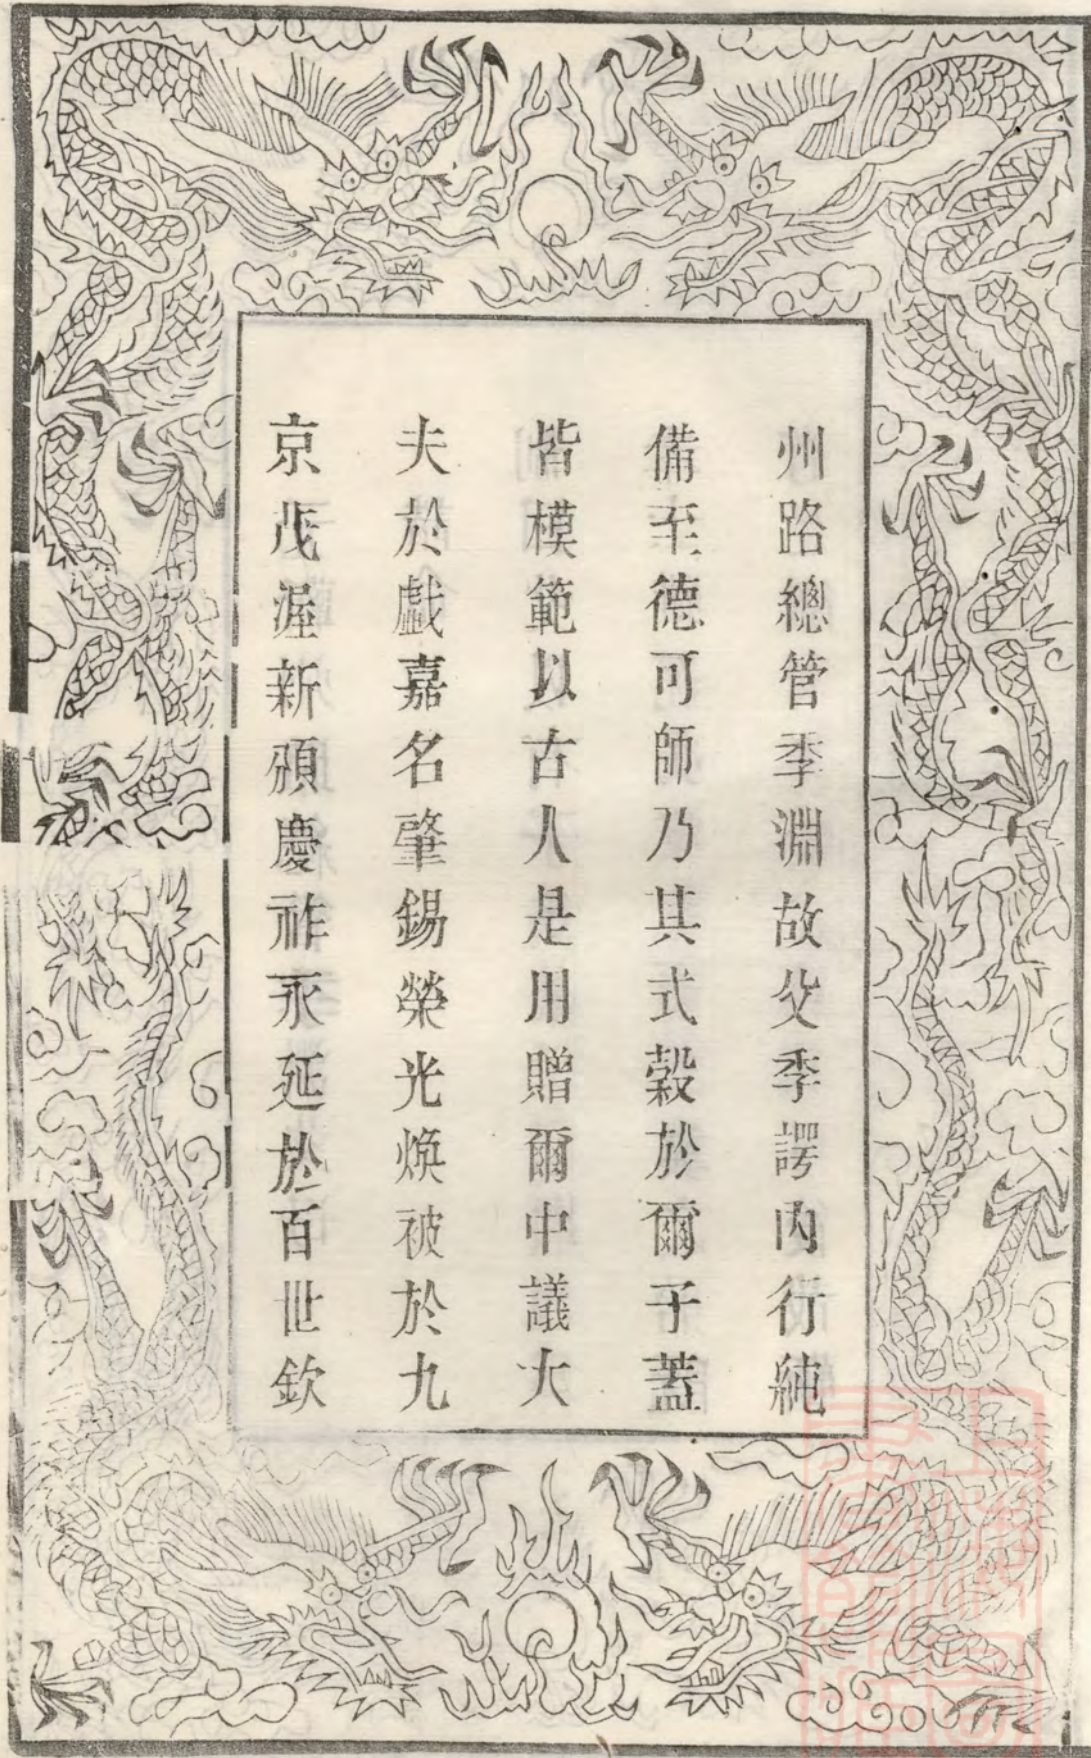 州路總管季淵故父季諤內行純
備至德可師乃其式穀於爾子蓋
皆模範以古人是用贈爾中議大
夫於戲嘉名肇錫榮光煥被於九
京茂渥新頒慶祚永延於百世欽